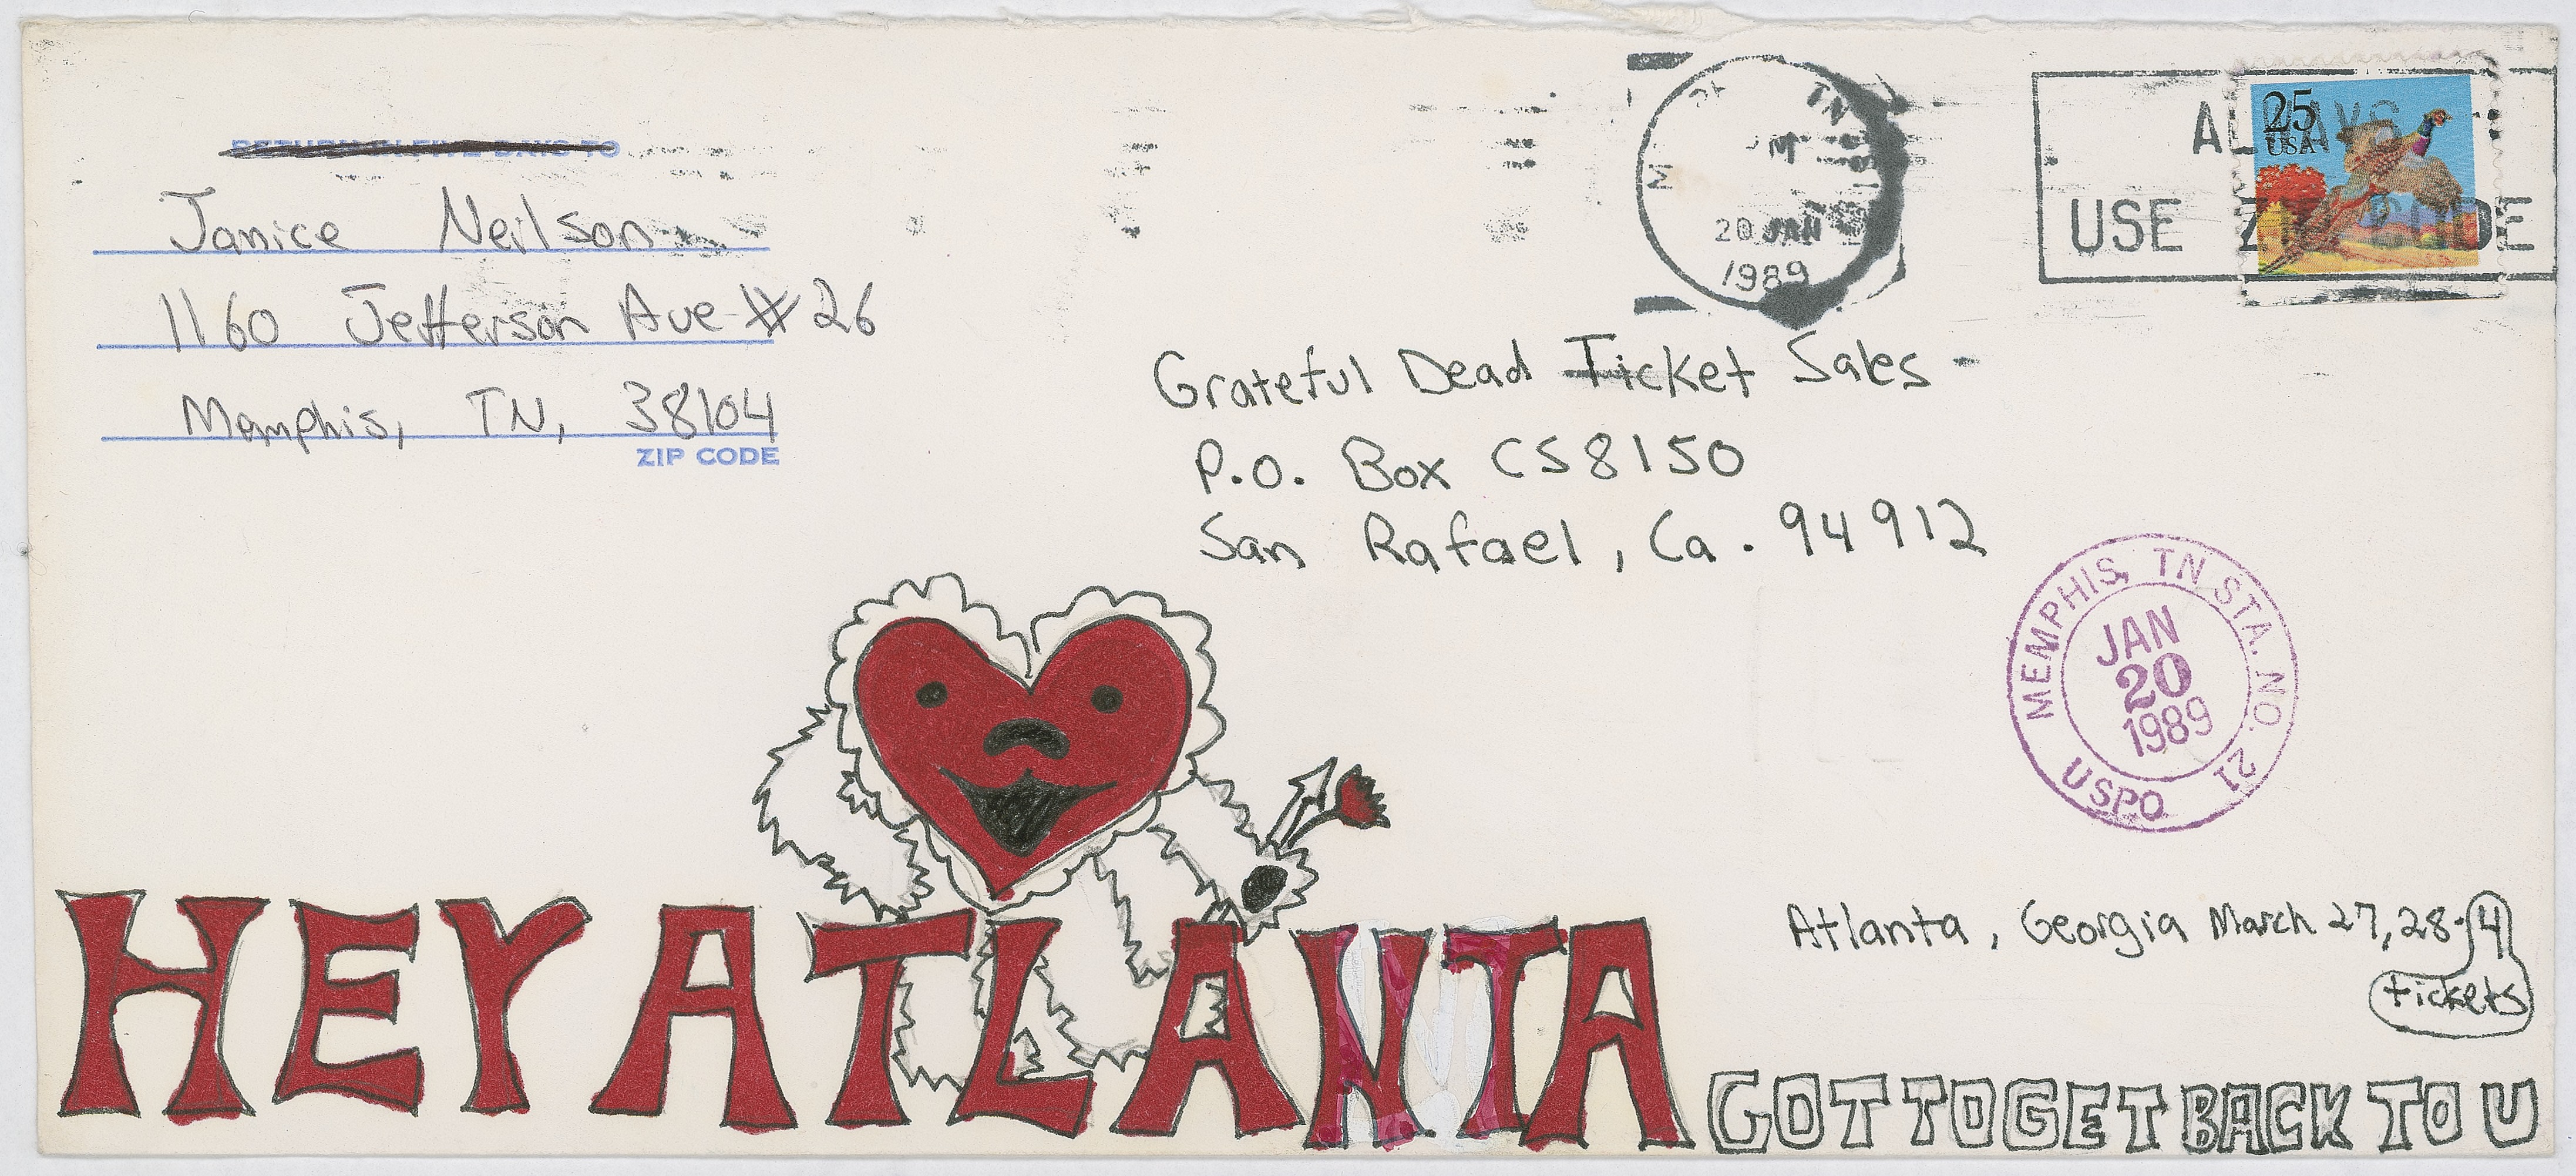 RETURN IN FIVE DAYS TO
Janice Neilson
1160 Jefferson Ave #26
Memphis, TN, 38104
ZIP CODE
TN
20 JAN
1989
ALWAYS
USE ZIP CODE
25
USA
Grateful Dead Ticket Sales -
P.O. Box CS8150
San Rafael, Ca. 94912
MEMPHIS, TN STA. NO. 21
JAN
20
1989
USPO
Atlanta, Georgia March 27, 28 - 4
tickets
HEY ATLANTA
GOT TO GET BACK TO U